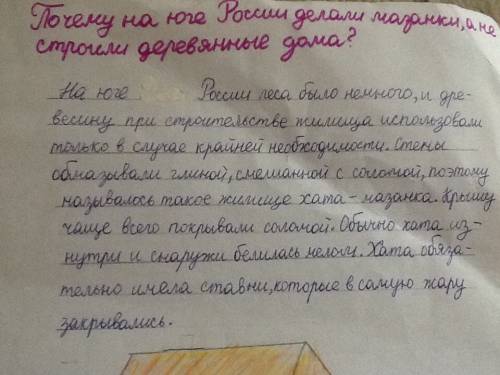 Почему на юге России делали мазанки, а не
строили деревянные дома?
На юге России леса было немного, и дре-
весину при строительстве жилища использовали
только в случае крайней необходимости. Стены
обмазывали глиной, смешанной с соломой, поэтому
называлось такое жилище хата-мазанка. Крышу
чаще всего покрывали соломой. Обычно хата из-
нутри и снаружи белилась мелом. Хата обяза-
тельно имела ставни, которые в самую жару
закрывались.